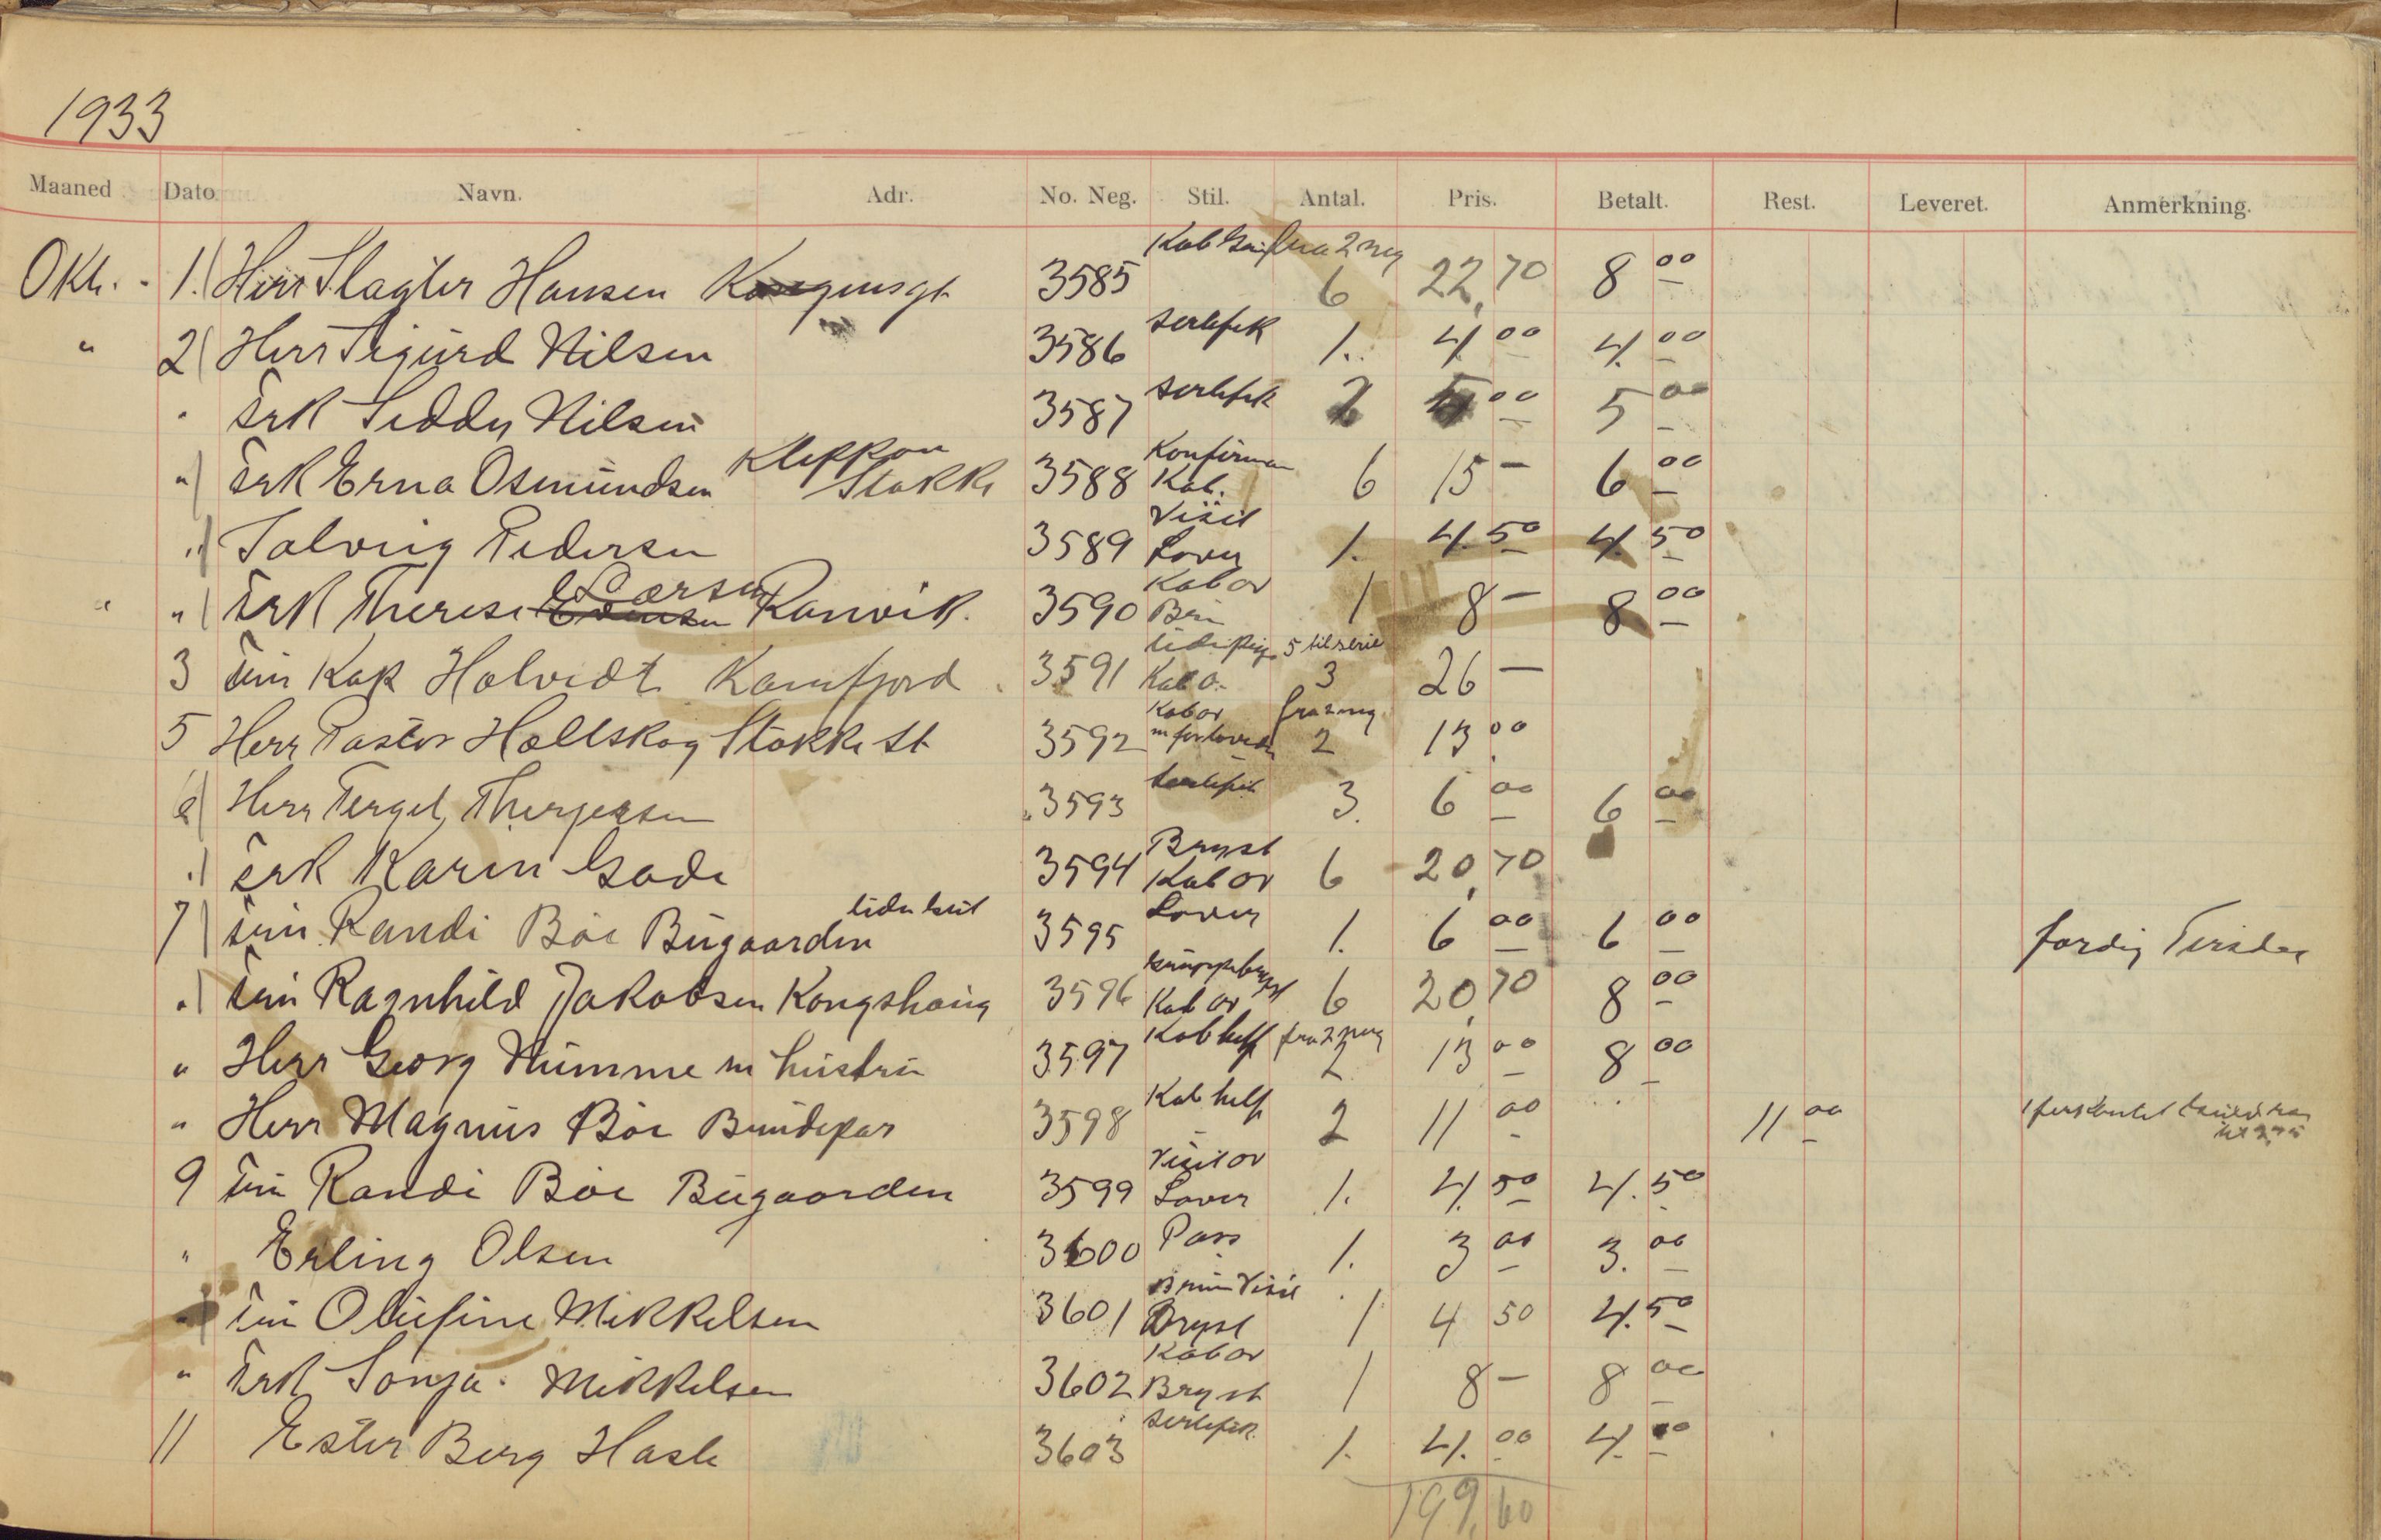 1933
Maaned Dato Navn. Adr. No. Neg. Stil. Antal. Pris. Betalt. Rest. Leveret. Anmerkning.
Okt. 1. Herr Slagter Hansen 3585 Kab fra 2 neg 6 22,70 8 00
" 2 Herr Sigurd Nilsen 3586 sertefik 1. 4 00 4. 00
" Frk Seddy Nilsen 3587 sertefik 5 00
" Frk Erna Osmundsen Kleppan Stokke 3588 Konfirman Kab. 6 15 — 6 00
" Solveig Pedersen 3589 Visit Lover 1. 4. 50 4. 50
" " Frk Therese Larsen Ranvik. 3590 Kab or 1 8 — 8 00
3 Kap Holvedt Kamfjord 3591 5 til serie Kab o. 3 26 —
5 Herr Pastor Hallskog Stokke St 3592 Kab or fra 2 neg 2 13 00
6 Herr Tergel Thergersen 3593 3. 6 00 6 00
" Frk Karin Gade 3594 Bryst Kab or 6 20,70
7 Randi Bøe Bugaarden 3595 Lover 1. 6 00 6 00 færdig Tirsdag
" Ragnhild Jakobsen Kongshaug 3596 Kab or 6 20,70 8 00
" Herr Georg Numme m hustru 3597 Kab hel fra 2 neg 2 13 00 8 00
" Herr Magnus Bøe 3598 Kab hel 2 11 00 11 00
9 Randi Bøe Bugaarden 3599 Visit or Lover 1. 4. 50 4. 50
" Erling Olsen 3600 Pass 1. 3 00 3. 00
" Olufine Mikkelsen 3601 Visit Bryst 1 4 50 4. 50
" Frk Sonja Mikkelsen 3602 Kab or Bryst 1 8 — 8 00
11 Ester Berg Hasle 3603 sertefik 1. 4. 00 4. 00
199,60